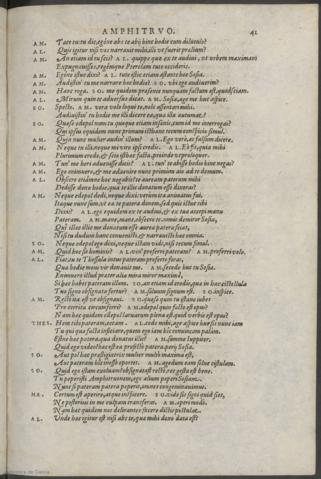 AMPHITRVO. 41
AM. Tace tu: tu dic, egóne abs te abij hinc hodie cum diluculo?
AL. Quis igitur nisi vos narrauit mihi, illi vt fuerit prælium?
AM. An etiam id tu scis? AL. quippe quæ ex te audiui, vt vrbem maximam
Expugnauisses, regémque Pterelam tute occideris.
AM. Egóne istuc dixi? AL. tute istic etiam astante hoc Sosia.
AM. Audistin' tu me narrare hæc hodie? SO. vbi ego audiuerim?
AM. Hanc roga. SO. me quidem præsente nunquam factum est, quod sciam.
AL. Mirum quin te aduersus dicat. AM. Sosia, age me huc aspice.
SO. Specto. AM. vera volo loqui te, nolo assentari mihi.
Audiuistin' tu hodie me illi dicere ea, quæ illa autumat?
SO. Quæso edepol num tu quoque etiam insanis, cum id me interrogas?
Qui ipsus equidem nunc primum isthanc tecum conspicio simul.
AM. Quid nunc mulier? audin' illum? AL. Ego verò, ac falsum dicere.
AM. Neque tu illi, neque mihi viro ipsi credis? AL. Eò fit, quia mihi
Plurimum credo, & scio isthæc facta, proinde vt proloquor.
AM. Tun' me heri aduenisse dicis? AL. tun' te abiisse hodie hinc negas?
AM. Nego enimuero, & me aduenire nunc primum aio ad te domum.
AL. Obsecro etiámne hoc negabis, te auream pateram mihi
Dedisse dono hodie, qua te illic donatum esse dixeras?
AM. Neque edepol dedi, neque dixi: verùm ita animatus fui,
Itaque nunc sum, vt ea te patera donem. sed quis istuc tibi
Dixit? AL. ego equidem ex te audiui, & ex tua accepi manu
Pateram. AM. mane, mane, obsecro te. nimis demiror Sosia,
Qui illæc illic me donatum esse aurea patera sciat,
Nisi tu dudum hanc conuenisti, & narrauisti hæc omnia.
SO. Neque edepol ego dixi, neque istam vidi, nisi tecum simul.
AM. Quid hoc sit hominis? AL. vin' proferri pateram? AM. proferri volo.
AL. Fiat. tu Thessala intus pateram proferto foras,
Qua hodie meus vir donauit me. AM. secede huc tu Sosia.
Enimuero illud præter alia mira miror maximè,
Si hæc habet pateram illam. SO. an etiam id credis, quæ in hac cistellula
Tuo signo obsignata fertur? AM. saluum signum est. SO. inspice.
AM. Rectè ita est vt obsignaui. SO. quæso quin tu istanc iubes
Pro cerrita circumferri? AM. edepol quin facto est opus:
Nam hæc quidem edepol laruarum plena est. quid verbis est opus?
THES. Hem tibi pateram, eccam. AL. cedo mihi, age aspice huc sis nunc iam
Tu qui quæ facta infitiare, quem ego iam hic conuincam palàm.
Estne hæc patera, qua donatus illic? AM. summe Iuppiter,
Quid ego video? hæc est ea profectò patera. perij Sosia.
SO. Aut pol hæc præstigiatrix mulier multò maxima est,
Aut pateram hîc inesse oportet. AM. agedum eam solue cistulam.
SO. Quid ego istam exoluam? obsignata est rectè. res gesta est bene.
Tu peperisti Amphitruonem, ego alium peperi Sosiam:
Nunc si pateram patera peperit, omnes congeminauimus.
AM. Certum est aperire, atque inspicere. SO. vide sis signi quid siet,
Ne posterius in me culpam transferas. AM. aperi modò.
Nam hæc quidem nos delirantes facere dictis postulat.
AL. Vnde hæc igitur est nisi abs te, quæ mihi dono data est?